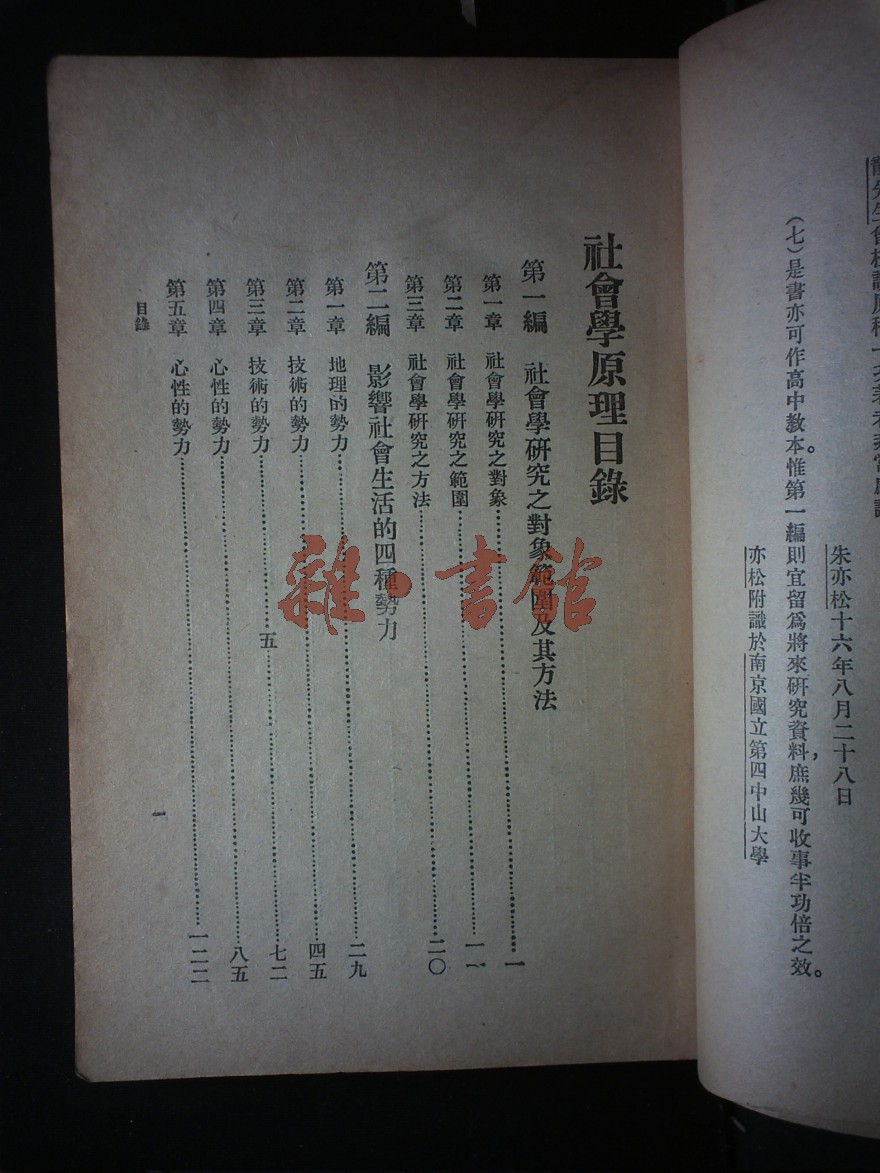 朱亦松十六年八月二十八日
(七)是書亦可作高中教本。惟第一編則宜留爲將來研究資料,庶幾可收事半功倍之效。
亦松附識於南京國立第四中山大學
社會學原理目錄
第一編 社會學研究之對象範圍及其方法
第一章 社會學研究之對象……一
第二章 社會學研究之範圍……一一
第三章 社會學研究之方法……二〇
第二編 影響社會生活的四種勢力
第一章 地理的勢力……二九
第二章 技術的勢力……四五
第三章 技術的勢力……五……七二
第四章 心性的勢力……八五
第五章 心性的勢力……一二二
目錄
一
雜·書館